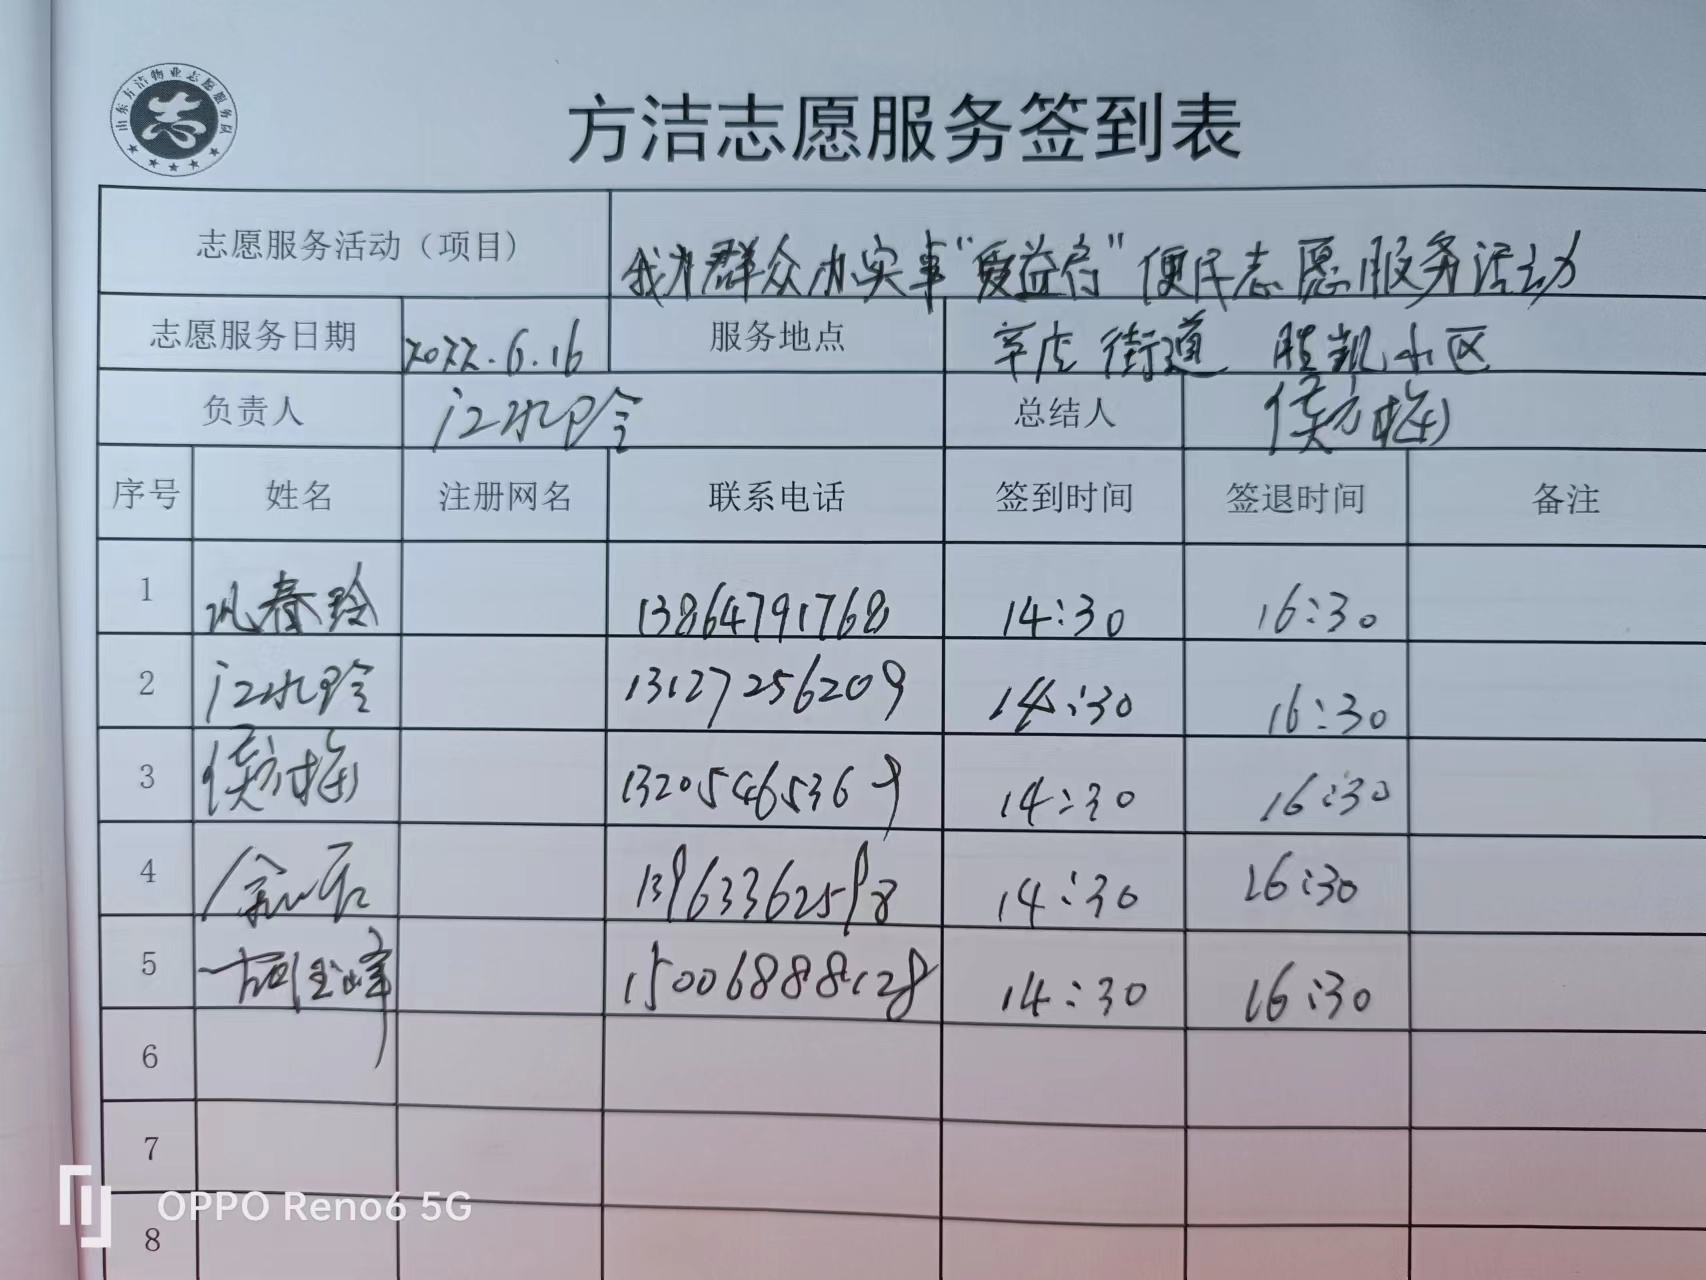 山东方洁物业志愿服务队
志
方洁志愿服务签到表
志愿服务活动（项目） 我为群众办实事“爱益行”便民志愿服务活动
志愿服务日期 2022.6.16 服务地点 辛店街道 胜凯小区
负责人 江水玲 总结人 侯方梅
序号 姓名 注册网名 联系电话 签到时间 签退时间 备注
1 巩春玲 13864791768 14:30 16:30
2 江水玲 13127256209 14:30 16:30
3 侯方梅 13205465369 14:30 16:30
4 13963362598 14:30 16:30
5 15006888128 14:30 16:30
6
7
8
OPPO Reno6 5G